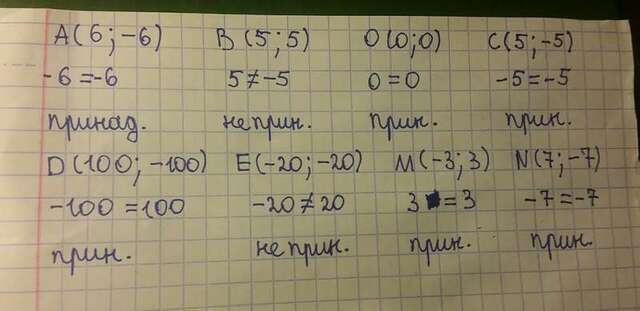 A(6; -6) B(5; 5) O(0; 0) C(5; -5)
-6 = -6 5 ≠ -5 0 = 0 -5 = -5
принад. не прин. прин. прин.
D(100; -100) E(-20; -20) M(-3; 3) N(7; -7)
-100 = 100 -20 ≠ 20 3 = 3 -7 = -7
прин. не прин. прин. прин.